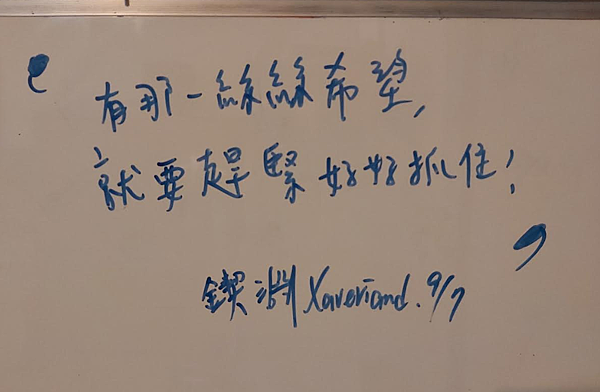 “有那一絲絲希望,
就要趕緊好好抓住!”
鍥淵Xaveriamd.9/7